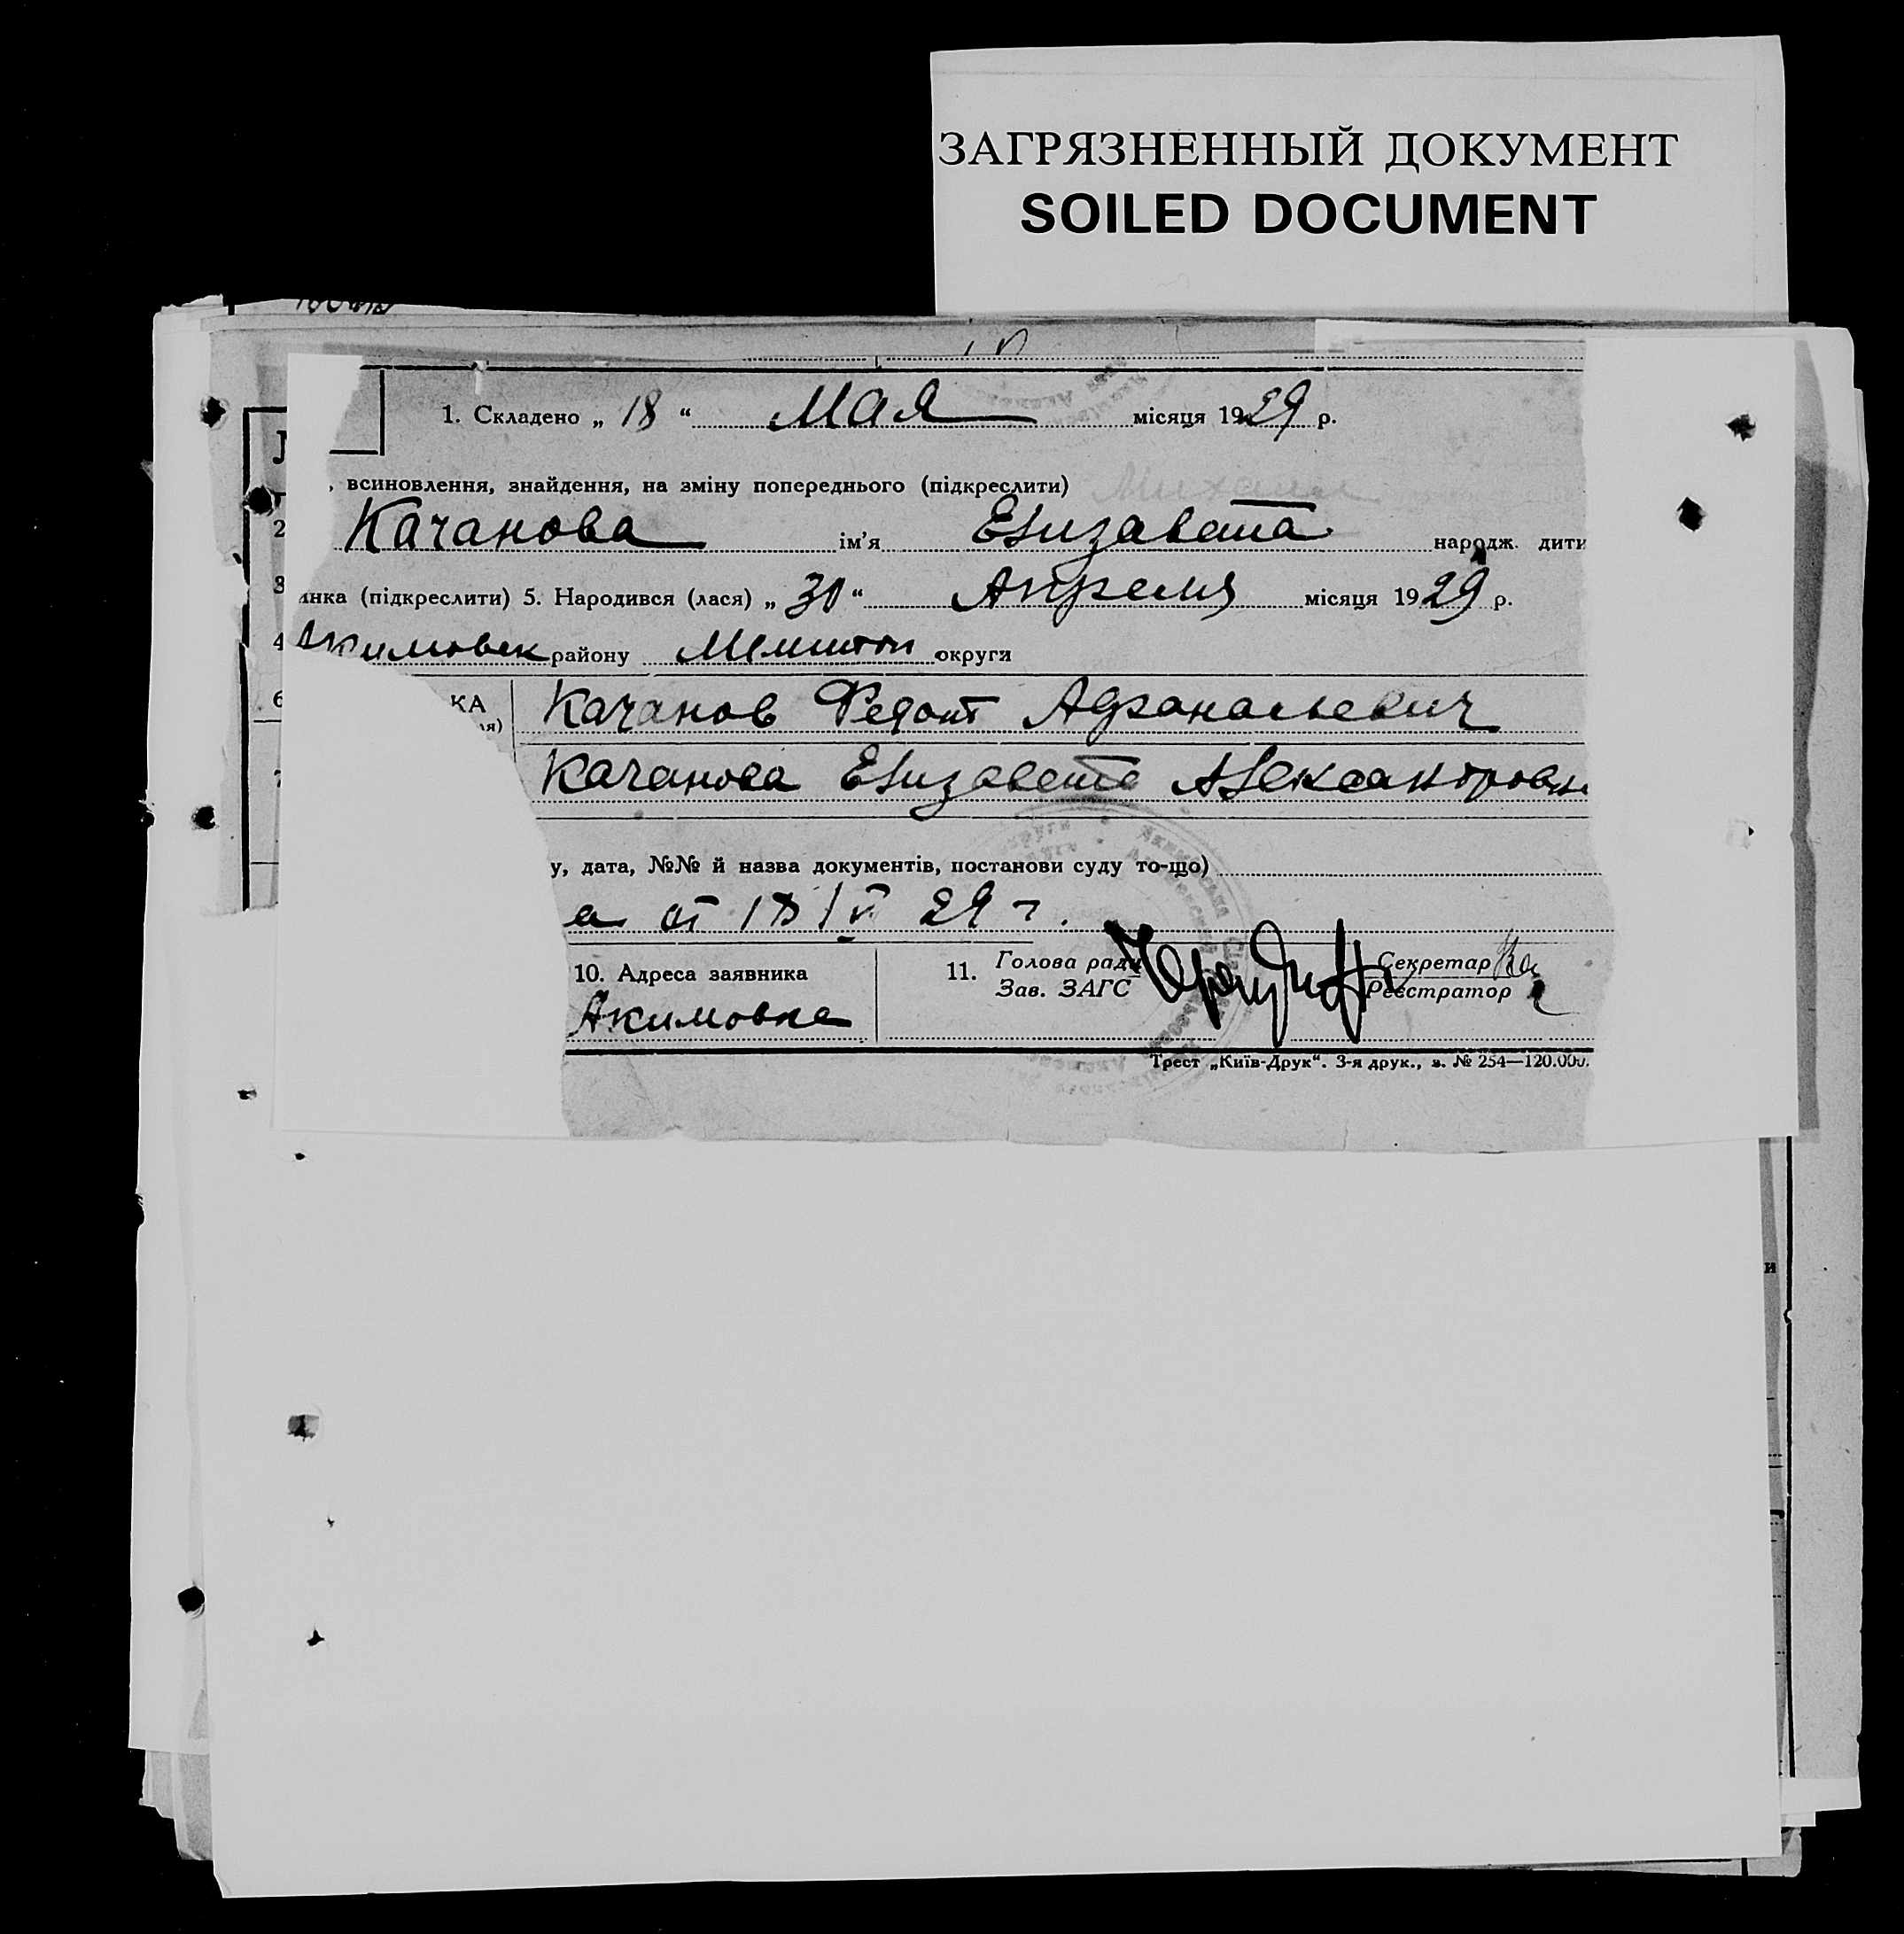 ЗАГРЯЗНЕННЫЙ ДОКУМЕНТ
SOILED DOCUMENT
1. Складено „ 18 “ Мая місяця 1929 р.
, всиновлення, знайдення, на зміну попереднього (підкреслити)
2 Качанова ім’я Елизавета народж. дити
3 инка (підкреслити) 5. Народився (лася) „ 30 “ Апреля місяця 1929 р.
4 Акимовск району Мелитоп округи
6 КА Качанов Федот Афанасьевич
ля)
7 Качанова Елизавета Александровна
у, дата, №№ й назва документів, постанови суду то-що)
а от 18/V 29 г.
10. Адреса заявника 11. Голова ради Секретар
Зав. ЗАГС Реєстратор
Акимовка
Трест „Київ-Друк“. 3-я друк., з. № 254—120.000.
и